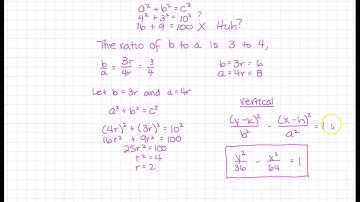 a² + b² = c²
4² + 3² = 10² ?
16 + 9 = 100 X Huh?
The ratio of b to a is 3 to 4,
b/a = 3r/4r = 3/4
b = 3r = 6
a = 4r = 8
Let b = 3r and a = 4r
a² + b² = c²
(4r)² + (3r)² = 10²
16r² + 9r² = 100
25r² = 100
r² = 4
r = 2
Vertical
(y-k)²/b² - (x-h)²/a² = 1
y²/36 - x²/64 = 1